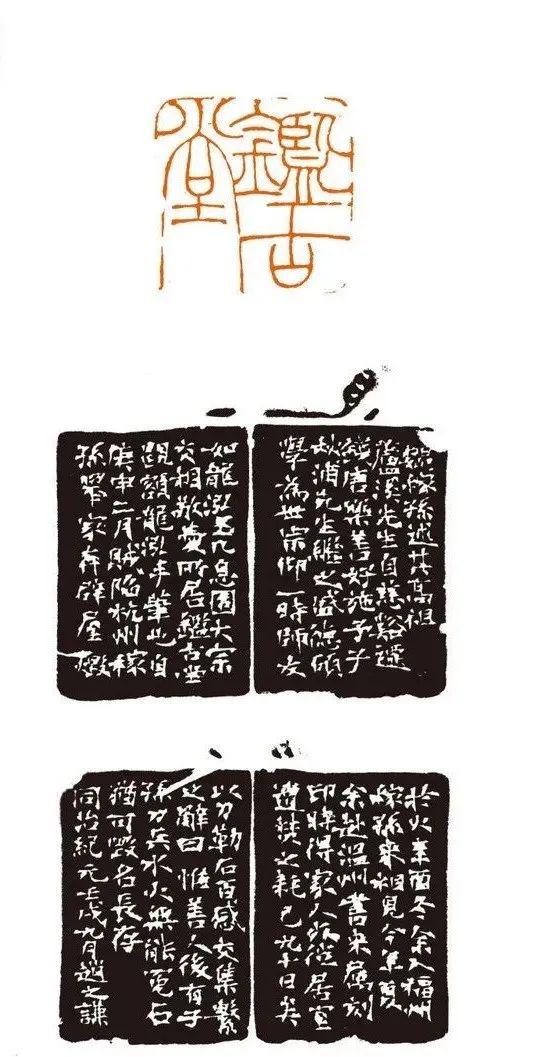 鑑古堂
稼孫述其高祖
蘆溪先生自慈谿遷
錢唐樂善好施子子
秋浦先生繼之盛德碩
學為世宗仰一時師友
如龍泓玉几息園大宗
交相敬愛所居鑑古堂
觀額龍泓手筆也自
庚申二月賊陷杭州稼
孫舉家奔辟屋燬
於火辛酉冬余入福州
稼孫來相見今年夏
余赴溫州書來屬刻
印時得家人居室
遭焚之耗已九十日矣
以刀勒石百感交集繫
之辭曰惟善人後有子
孫刀兵水火無能冤石
猶可毀名長存
同治紀元壬戌九月趙之謙